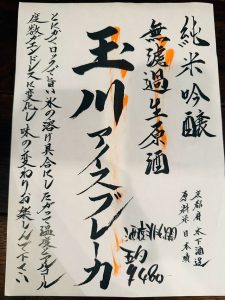 純米吟醸
無濾過生原酒
玉川 アイスブレーカー
京都府 木下酒造
原料米 日本晴
¥480
とにかくロックで旨い氷の溶け具合にしたがって温度とアルコール
度数がエンドレスに変化し味の変わりお楽しみ下さい